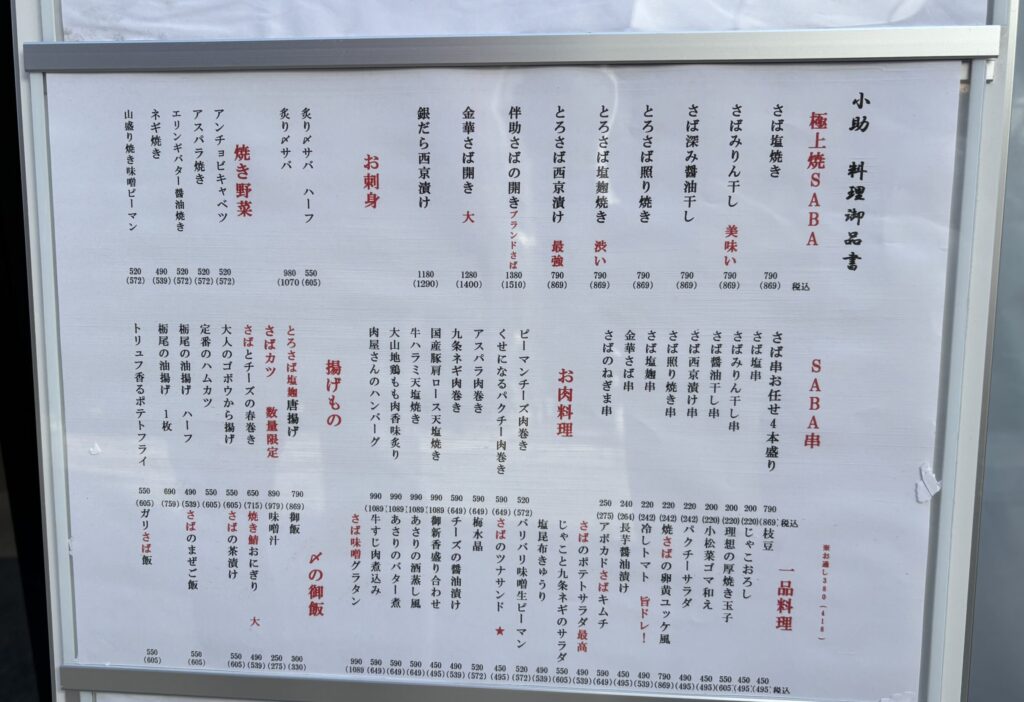 小助 料理御品書
極上焼SABA
さば塩焼き 790 (869) 税込
さばみりん干し 美味い 790 (869)
さば深み醤油干し 790 (869)
とろさば照り焼き 790 (869)
とろさば塩麹焼き 渋い 790 (869)
とろさば西京漬け 最強 790 (869)
伴助さばの開き ブランドさば 1380 (1510)
金華さば開き 大 1280 (1400)
銀だら西京漬け 1180 (1290)
お刺身
炙り〆サバ ハーフ 550 (605)
炙り〆サバ 980 (1070
焼き野菜
アンチョビキャベツ 520 (572)
アスパラ焼き 520 (572)
エリンギバター醤油焼き 520 (572)
ネギ焼き 490 (539)
山盛り焼き味噌ピーマン 520 (572)
SABA串
さば串お任せ4本盛り 790 (869) 税込
さば塩串 200 (220)
さばみりん干し串 200 (220)
さば醤油干し串 200 (220)
さば西京漬け串 220 (242)
さば照り焼き串 220 (242)
さば塩麹串 220 (242)
金華さば串 240 (264)
さばのねぎま串 250 (275)
お肉料理
ピーマンチーズ肉巻き 520 (572)
くせになるパクチー肉巻き 590 (649)
アスパラ肉巻き 590 (649)
九条ネギ肉巻き 590 (649)
国産豚肩ロース天塩焼き 990 (1089)
牛ハラミ天塩焼き 990 (1089)
大山地鶏もも肉香味炙り 990 (1089)
肉屋さんのハンバーグ 990 (1089
揚げもの
とろさば塩麹唐揚げ 790 (869)
さばカツ 数量限定 890 (979)
さばとチーズの春巻き 650 (715)
大人のゴボウから揚げ 550 (605)
定番のハムカツ 550 (605)
栃尾の油揚げ ハーフ 490 (539)
栃尾の油揚げ 1枚 690 (759)
トリュフ香るポテトフライ 550 (605)
※お通し380(418)
一品料理
枝豆 450 (495) 税込
じゃこおろし 450 (495)
理想の厚焼き玉子 550 (605)
小松菜ゴマ和え 450 (495)
パクチーサラダ 490
焼さばの卵黄ユッケ風 790 (869)
冷しトマト 旨ドレ! 490 (539)
長芋醤油漬け 450 (495)
アボカドさばキムチ 590 (649)
さばのポテトサラダ最高 490 (539)
じゃこと九条ネギのサラダ 550 (605)
塩昆布きゅうり 490 (539)
バリバリ味噌生ピーマン 520 (572)
さばのツナサンド ★ 450 (495)
梅水晶 520 (572)
チーズの醤油漬け 490 (539)
御新香盛り合わせ 450 (495)
あさりの酒蒸し風 590 (649)
あさりのバター煮 590 (649)
牛すじ肉煮込み 590 (649)
さば味噌グラタン 990 (1089
〆の御飯
御飯 300 (330)
味噌汁 250 (275)
焼き鯖おにぎり 大 490 (539)
さばの茶漬け 550 (605)
さばのまぜご飯 550 (605)
ガリさば飯 550 (605)